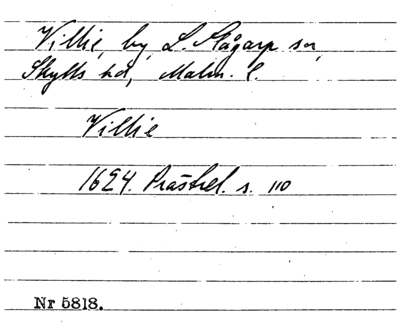 Villie, by, L. Slågarp sn,
Skytts hd, Malm. l.
Villie
1624. Prästrel. s. 110
Nr 5818.